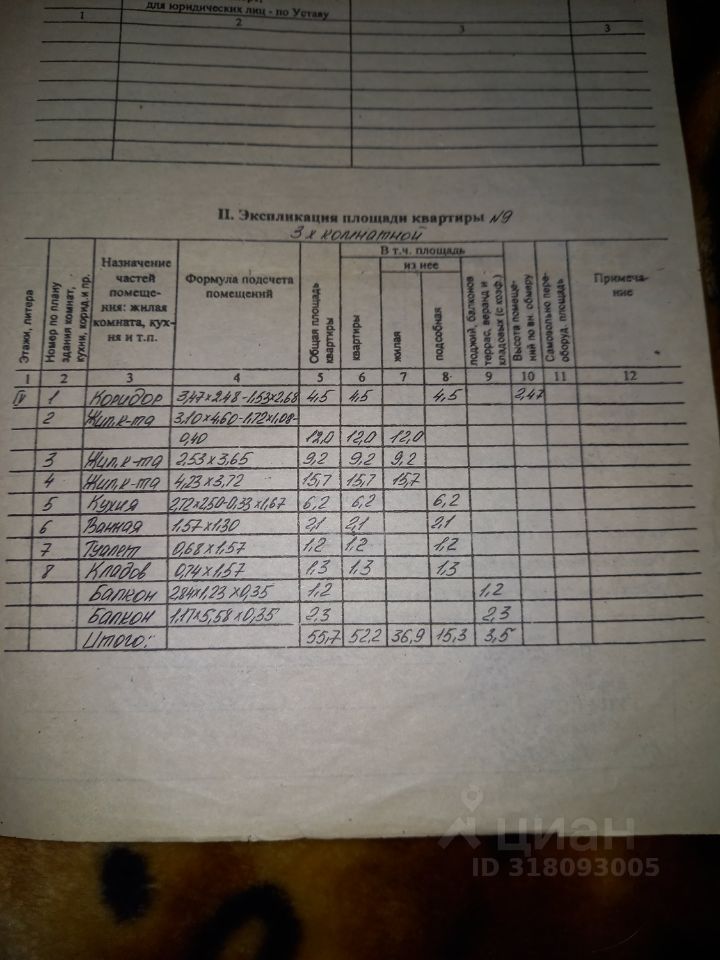 для юридических лиц - по Уставу
1 2 3 3
II. Экспликация площади квартиры №9
3х комнатной
Этажи, литера
Номер по плану здания комнат, кухни, корид.и пр.
Назначение частей помеще- ния: жилая комната, кух- ня и т.п.
Формула подсчета помещений
Общая площадь квартиры
В т.ч. площадь
квартиры
из нее
жилая
подсобная
лоджий, балконов террас, веранд и кладовых (с коэф.)
Высота помеще- ний по вн. обмеру
Самовольно пере- оборуд. площадь
Примеча- ние
1 2 3 4 5 6 7 8 9 10 11 12
IV 1 Коридор 3,47×2,48-1,53×2,68 4,5 4,5 4,5 2,47
2 Жил.к-та 3,10×4,60-1,72×1,08-
0,40 12,0 12,0 12,0
3 Жил.к-та 2,53×3,65 9,2 9,2 9,2
4 Жил.к-та 4,23×3,72 15,7 15,7 15,7
5 Кухня 2,72×2,50-0,33×1,67 6,2 6,2 6,2
6 Ванная 1,57×1,30 2,1 2,1 2,1
7 Туалет 0,68×1,57 1,2 1,2 1,2
8 Кладов 0,74×1,57 1,3 1,3 1,3
Балкон 2,84×1,23×0,35 1,2 1,2
Балкон 1,17×5,58×0,35 2,3 2,3
Итого: 55,7 52,2 36,9 15,3 3,5
циан
ID 318093005